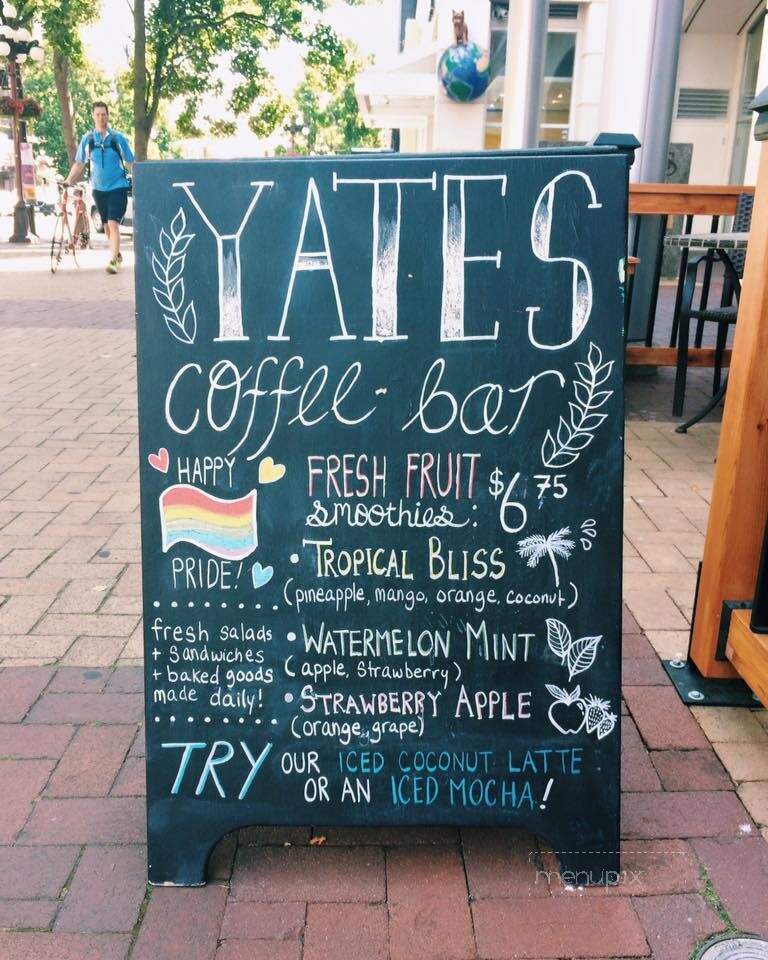 YATES
coffee-bar
HAPPY
PRIDE!
fresh salads
+ sandwiches
+ baked goods
made daily!
FRESH FRUIT $6 75
smoothies:
• TROPICAL BLISS
(pineapple, mango, orange, coconut)
• WATERMELON MINT
(apple, strawberry)
• STRAWBERRY APPLE
(orange, grape)
TRY OUR ICED COCONUT LATTE
OR AN ICED MOCHA!
menupix